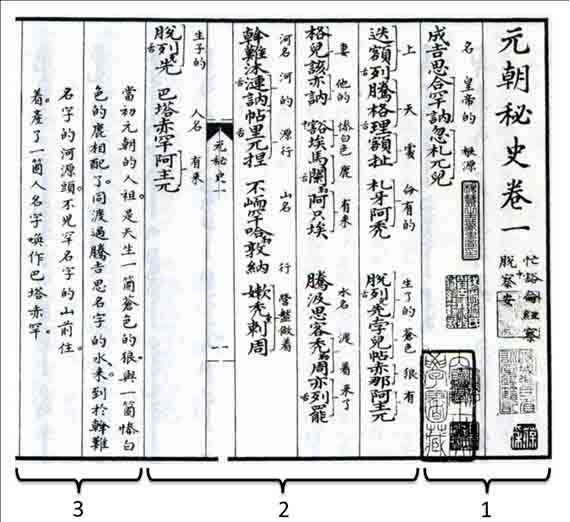 元朝秘史卷一
忙豁侖紐察
脫察安
名 皇帝的 根源
成吉思合罕訥忽札兀兒
上 天 處 命有的 生了的 蒼色 狼 有
迭額列騰格理額扯 札牙阿禿 脫列先孛兒帖赤那阿主兀
妻 他的 慘白色鹿 有來 水名 渡着來了
格兒該亦訥 豁埃馬闌勒阿只埃 騰汲思客禿周亦列罷
河名 河的 源行 山名 行 營盤做着
斡難沐漣訥帖里兀捏 不峏罕哈敦納 嫩禿剌周
元秘史一
一
生子的 人名 有來
脫列先 巴塔赤罕阿主兀
當初元朝的人祖是天生一箇蒼色的狼。與一箇慘白
色的鹿相配了。同渡過騰吉思名字的水。來到於斡難
名字的河源頭。不兒罕名字的山前住
着。產了一箇人名字喚作巴塔赤罕。
3 2 1